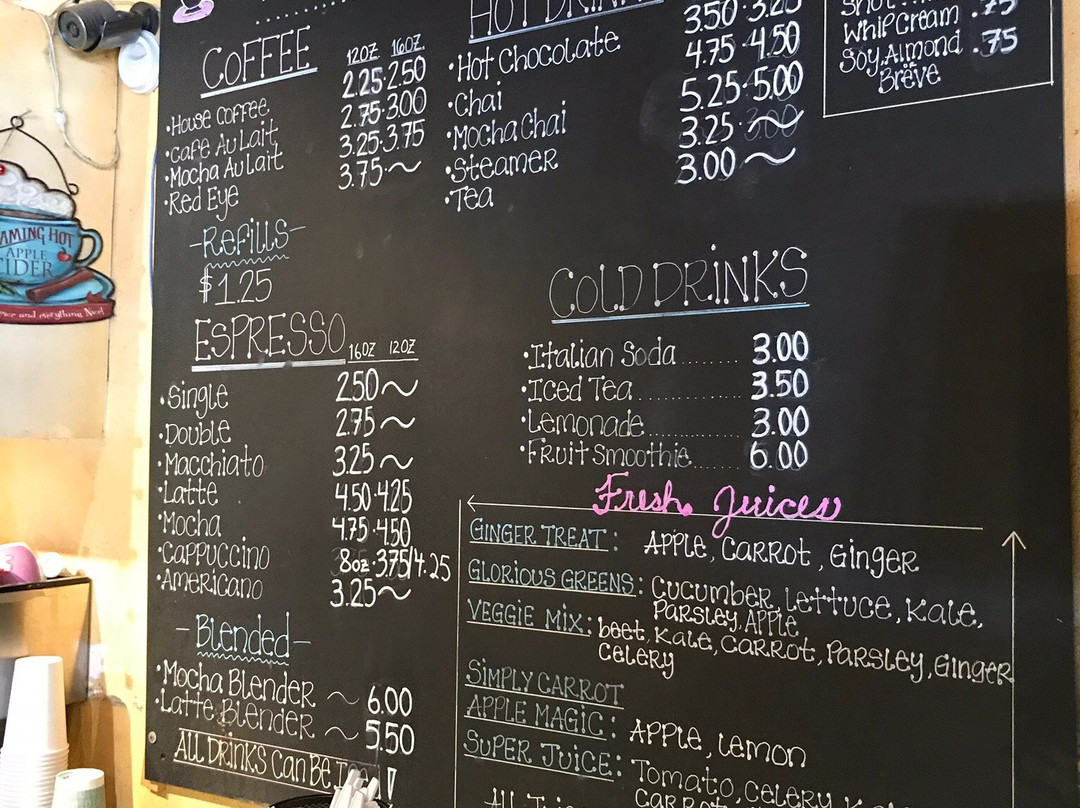 COFFEE
12OZ 16OZ
•House Coffee 2.25•2.50
•Cafe Au Lait 2.75•3.00
•Mocha Au Lait 3.25•3.75
•Red Eye 3.75•~
-Refills-
$1.25
ESPRESSO
16OZ 12OZ
•Single 2.50~
•Double 2.75~
•Macchiato 3.25~
•Latte 4.50•4.25
•Mocha 4.75•4.50
•Cappuccino 8oz•3.75/4.25
•Americano 3.25~
-Blended-
•Mocha Blender ~ 6.00
•Latte Blender ~ 5.50
ALL DRINKS CAN BE
HOT DRINK
•Hot Chocolate 3.50•3.25
•Chai 4.75•4.50
•Mocha Chai 5.25•5.00
•Steamer 3.25•~
•Tea 3.00~
Whip Cream .75
Soy, Almond .75
Brëve
COLD DRINKS
•Italian Soda........ 3.00
•Iced Tea............. 3.50
•Lemonade........... 3.00
•Fruit Smoothie...... 6.00
Fresh Juices
GINGER TREAT: APPLE, CARROT, Ginger
GLORIOUS GREENS: CUCUMBER, Lettuce, Kale,
PARSLEY, APPLE
VEGGIE MIX: beet, Kale, CARROT, PARSLEY, Ginger
Celery
SIMPLY CARROT
APPLE MAGIC: APPLE, Lemon
SUPER JUICE: Tomato, Celery,
Carrot
ALL
AMING HOT
APPLE
CIDER
and everything Nice!